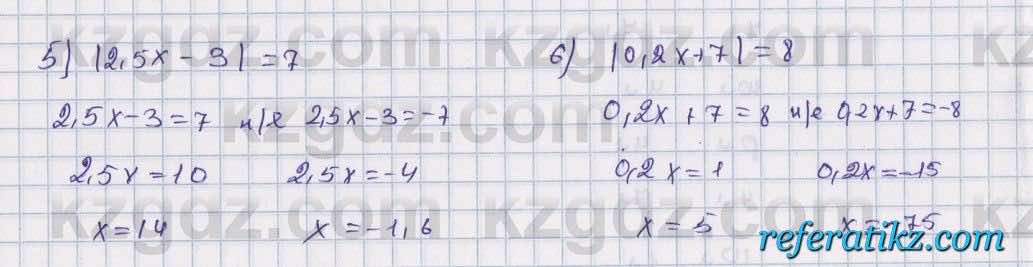 5) |2,5x - 3| = 7
2,5x - 3 = 7 н/е 2,5x - 3 = -7
2,5x = 10 2,5x = -4
x = 14 x = -1,6
6) |0,2x + 7| = 8
0,2x + 7 = 8 н/е 0,2x + 7 = -8
0,2x = 1 0,2x = -15
x = 5 x = -75
kzgdz.com
referatikz.com